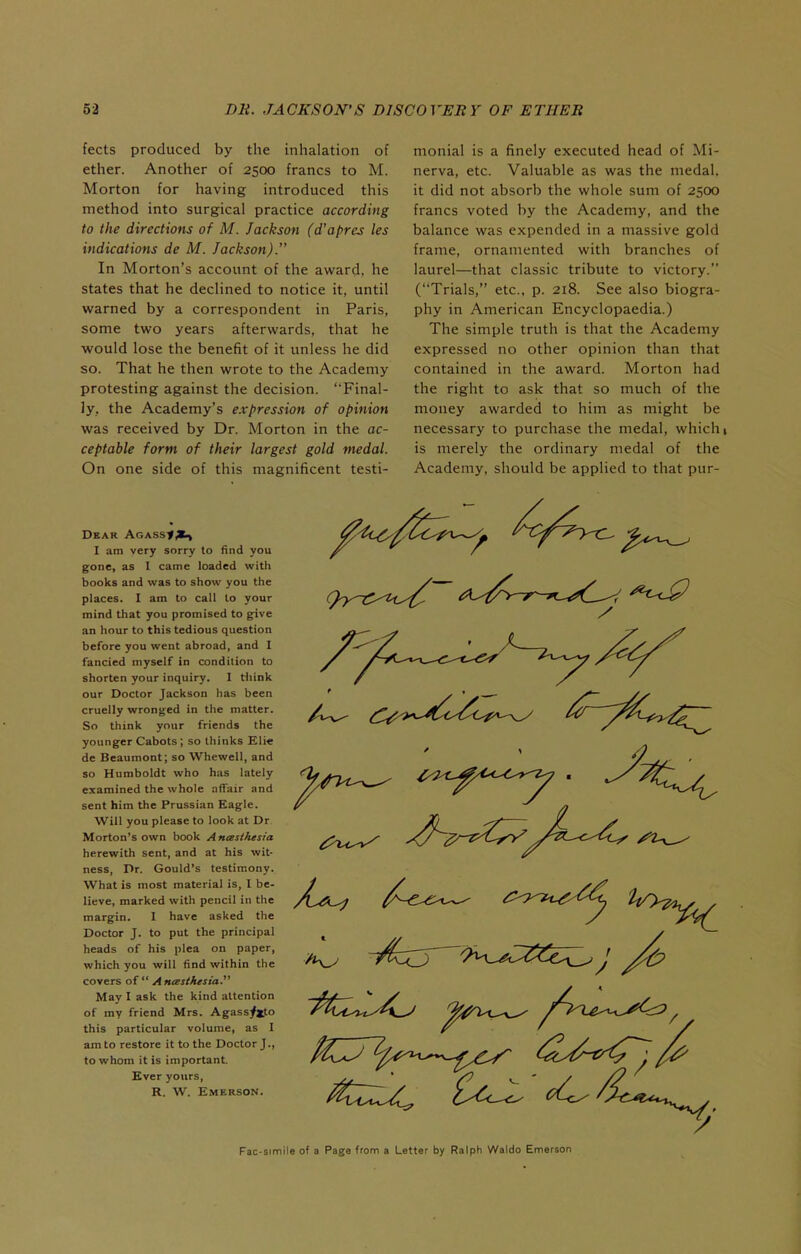 52 DR. JACKSON'S DISCOVERY OF ETHER
fects produced by the inhalation of
ether. Another of 2500 francs to M.
Morton for having introduced this
method into surgical practice according
to the directions of M. Jackson (d'apres les
indications de M. Jackson)."
In Morton's account of the award, he
states that he declined to notice it, until
warned by a correspondent in Paris,
some two years afterwards, that he
would lose the benefit of it unless he did
so. That he then wrote to the Academy
protesting against the decision. "Final-
ly, the Academy's expression of opinion
was received by Dr. Morton in the ac-
ceptable form of their largest gold medal.
On one side of this magnificent testi-
monial is a finely executed head of Mi-
nerva, etc. Valuable as was the medal,
it did not absorb the whole sum of 2500
francs voted by the Academy, and the
balance was expended in a massive gold
frame, ornamented with branches of
laurel—that classic tribute to victory."
("Trials," etc., p. 218. See also biogra-
phy in American Encyclopaedia.)
The simple truth is that the Academy
expressed no other opinion than that
contained in the award. Morton had
the right to ask that so much of the
money awarded to him as might be
necessary to purchase the medal, which
is merely the ordinary medal of the
Academy, should be applied to that pur-
DEAR
I am very sorry to find you
gone, as I came loaded with
books and was to show you the
places. I am to call to your
mind that you promised to give
an hour to this tedious question
before you went abroad, and I
fancied myself in condition to
shorten your inquiry. I think
our Doctor Jackson has been
cruelly wronged in the matter.
So think your friends the
younger Cabots; so thinks Elie
de Beaumont; so Whewell, and
so Humboldt who has lately
examined the whole affair and
sent him the Prussian Eagle.
Will you please to look at Dr
Morton's own book Anæsthesia
herewith sent, and at his wit-
ness, Dr. Gould's testimony.
What is most material is, I be-
lieve, marked with pencil in the
margin. I have asked the
Doctor J. to put the principal
heads of his plea on paper,
which you will find within the
covers of "Anæsthesia."
May I ask the kind attention
of my friend Mrs. to
this particular volume, as I
am to restore it to the Doctor J.,
to whom it is important.
Ever yours,
R. W. EMERSON.
question before you
went abroad; and
I fancied myself
in condition to shorten
your inquiry. I think
our Doctor Jackson
has been cruelly wronged
in the matter; so
think your friends,
the younger Cabots; so
thinks Elie de Beaumont,
Fac-simile of a Page from a Letter by Ralph Waldo Emerson